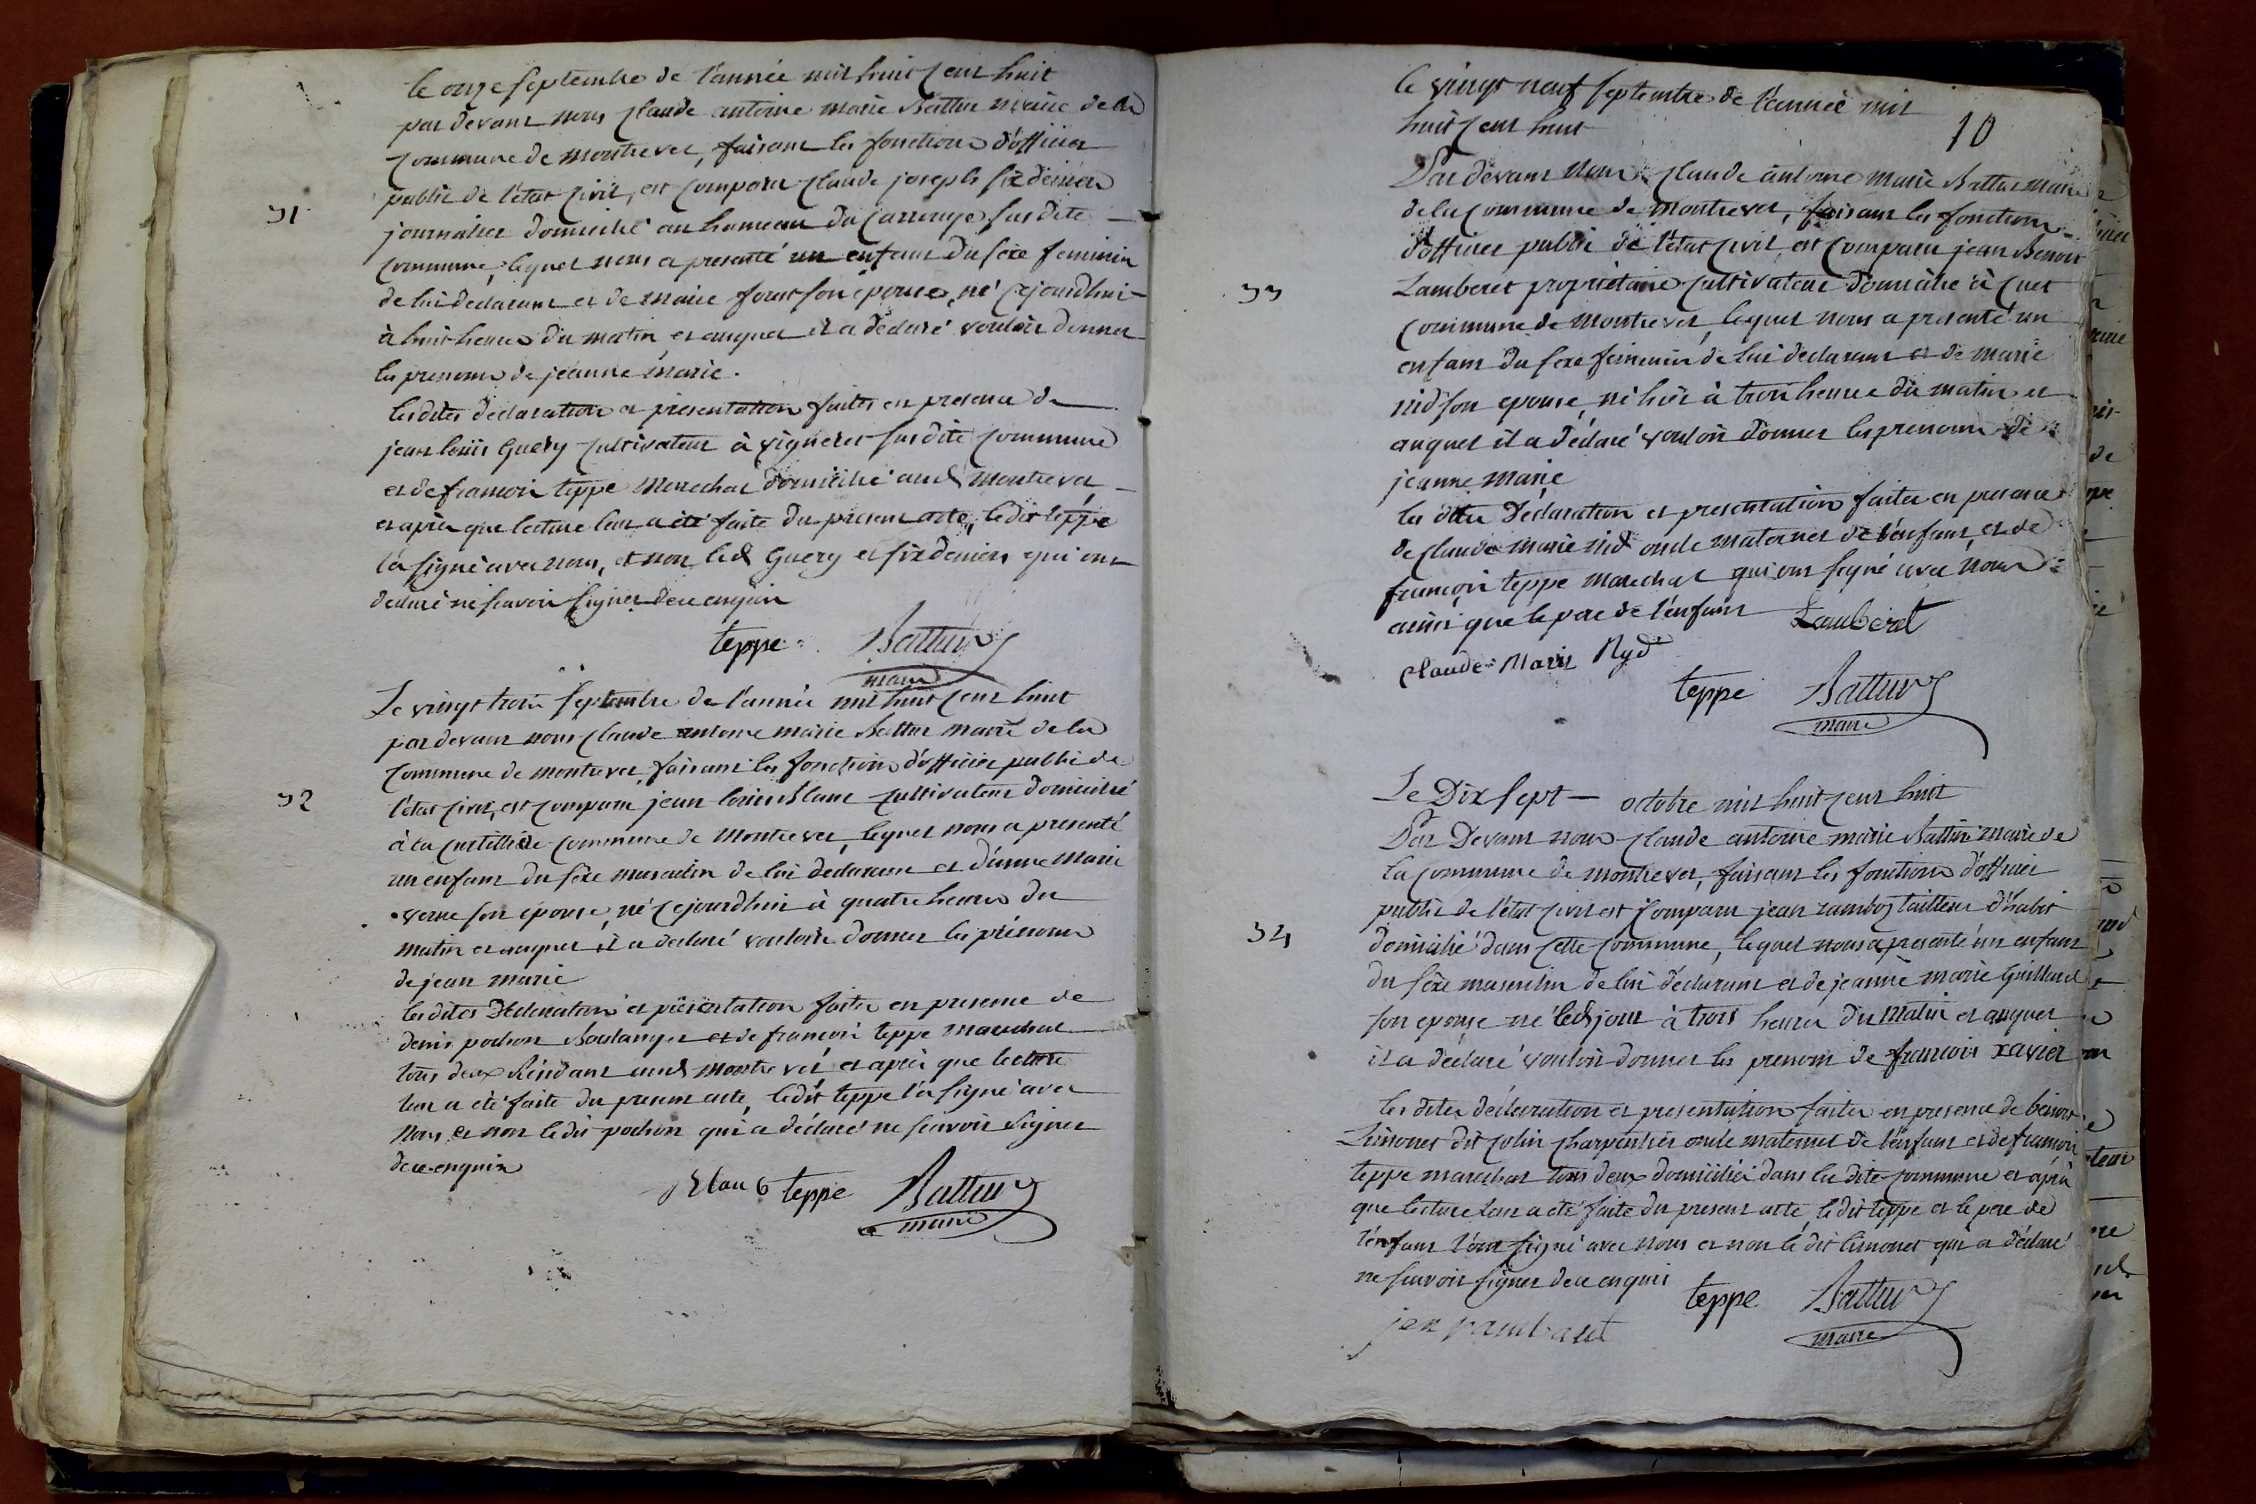 le onze septembre de l'année mil huit cent huit
par devant nous claude antoine marie Battur maire de la
commune de montrevel, faisant les fonctions d'officier
public de l'état civil, est comparu claude joseph sixdenier
31
journalier domicilié au hameau du carrouge susdite
commune, lequel nous a presenté un enfant du sexe feminin
de lui declarant et de marie forest son epouse, né cejourdhui
à huit heures du matin, et auquel il a declaré vouloir donner
les prenoms de jeanne marie.
lesdites declaration et presentation faites en presence de
jean louis Guery cultivateur à vigneret susdite commune
et de francois teppe marechal domicilié aud montrevel
et après que lecture leur a été faite du present acte, ledit teppe
l'a signé avec nous, et non led Guery et sixdeniers qui ont
declaré ne scavoir signer de ce enquis
teppe Battur
maire
Le vingt trois septembre de l'année mil huit cent huit
par devant nous claude antoine marie Battur maire de la
commune de montrevel, faisant les fonctions d'officier public de
32
l'état civil, est comparu jean louis Blanc cultivateur domicilié
à la curtillière commune de montrevel, lequel nous a presenté
un enfant du sexe masculin de lui declarant et d'anne marie
verne son epouse, né cejourdhui à quatre heures du
matin et auquel il a declaré vouloir donner les prénoms
de jean marie
les dites déclaration et présentation faites en presence de
denis pochon Boulanger et de francois teppe marechal
tous deux résidant aud montrevel et après que lecture
leur a été faite du present acte, ledit teppe l'a signé avec
nous et non le dit pochon qui a déclaré ne scavoir signer
de ce enquis
Blanc teppe Battur
maire
le vingt neuf septembre de l'année mil
huit cent huit
10
Par devant nous claude antoine marie Battur maire
de la commune de montrevel, faisant les fonctions
d'officier public de l'état civil, est comparu jean Benoit
33
Lamberet propriétaire cultivateur domicilié à cuet
commune de montrevel, lequel nous a presenté un
enfant du sexe feminin de lui declarant et de marie
nid son epouse, né hier à trois heures du matin et
auquel il a déclaré vouloir donner les prenoms de
jeanne marie
les dites déclaration et presentation faites en presence
de claude marie nid oncle maternel de l'enfant, et de
francois teppe marechal qui ont signé avec nous
ainsi que le pere de l'enfant Lamberet
claude Marie Nyd
teppe Battur
maire
Le Dix sept octobre mil huit cent huit
Par Devant nous claude antoine marie Battur maire de
la commune de montrevel, faisant les fonctions d'officier
public de l'état civil est comparu jean ramboz tailleur d'habit
34
domicilié dans cette commune, lequel nous a presenté un enfant
du sexe masculin de lui déclarant et de jeanne marie Guillard
son epouse né led jour à trois heures du matin et auquel
il a déclaré vouloir donner les prenoms de francois xavier
les dites déclaration et presentation faites en presence de benoit
Limonet dit colin charpentier oncle maternel de l'enfant et de francois
teppe marechal tous deux domiciliés dans la dite commune et après
que lecture leur a eté faite du present acte, le dit teppe et le pere de
l'enfant l'ont signé avec nous et non le dit Limonet qui a déclaré
ne scavoir signer de ce enquis
teppe Battur
maire